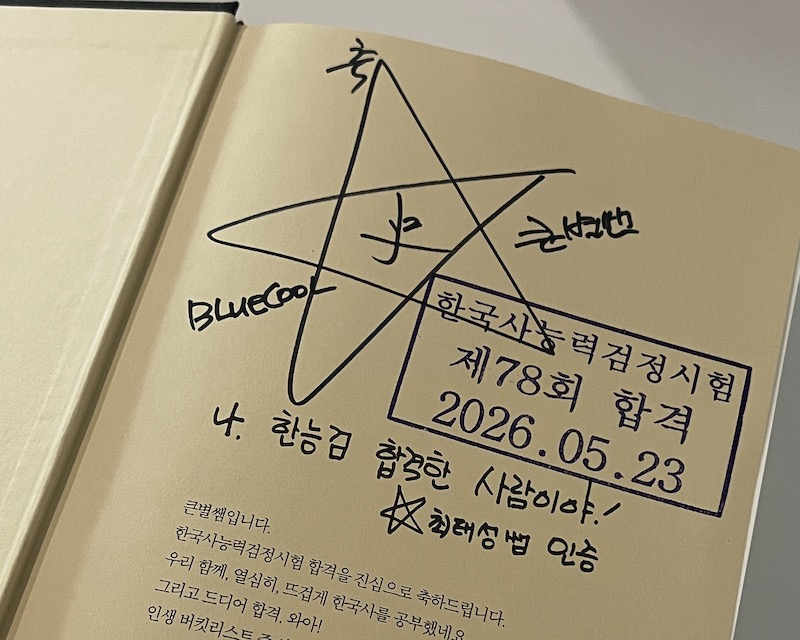 축
BLUECOOL
큰별쌤
한국사능력검정시험
제78회 합격
2026.05.23
나. 한능검 합격한 사람이야!
최태성쌤 인증
큰별쌤입니다.
한국사능력검정시험 합격을 진심으로 축하드립니다.
우리 함께, 열심히, 뜨겁게 한국사를 공부했네요.
그리고 드디어 합격. 와아!
인생 버킷리스트